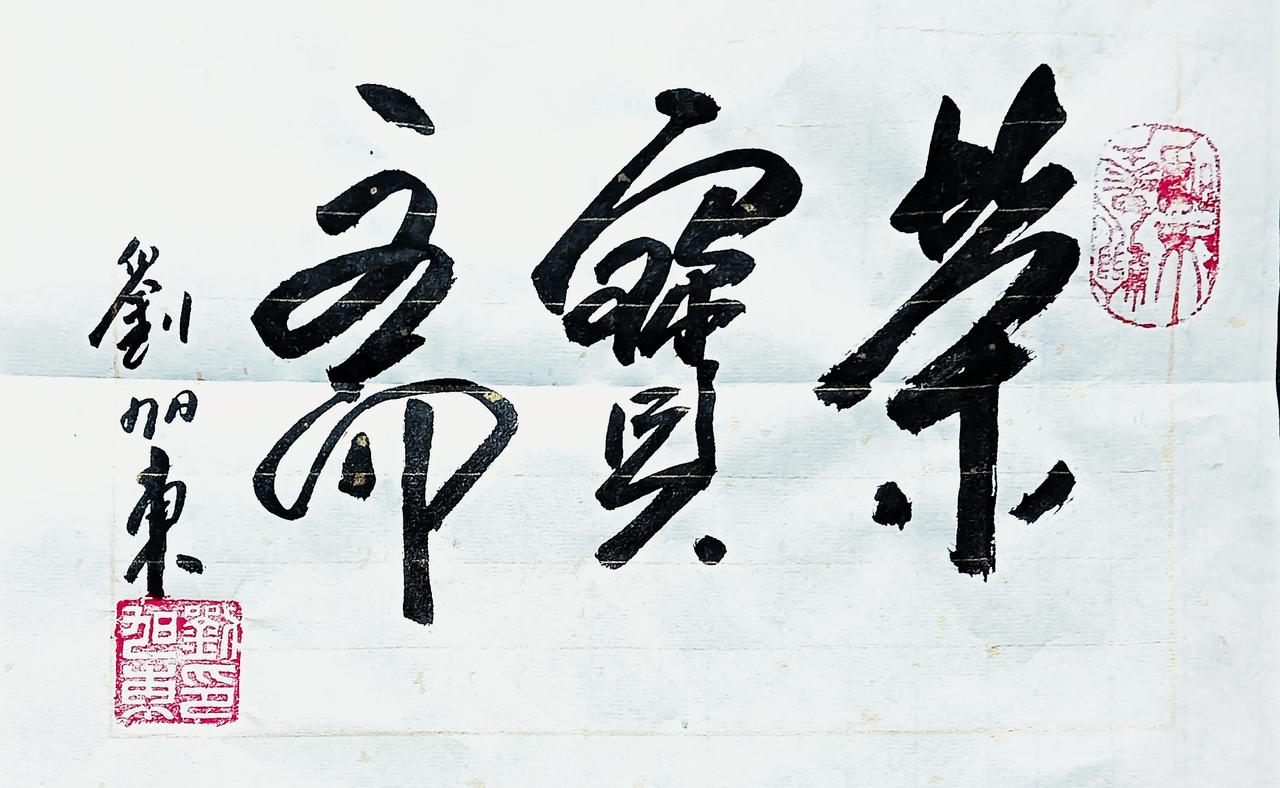 榮寶齋
劉旭東
劉旭東印